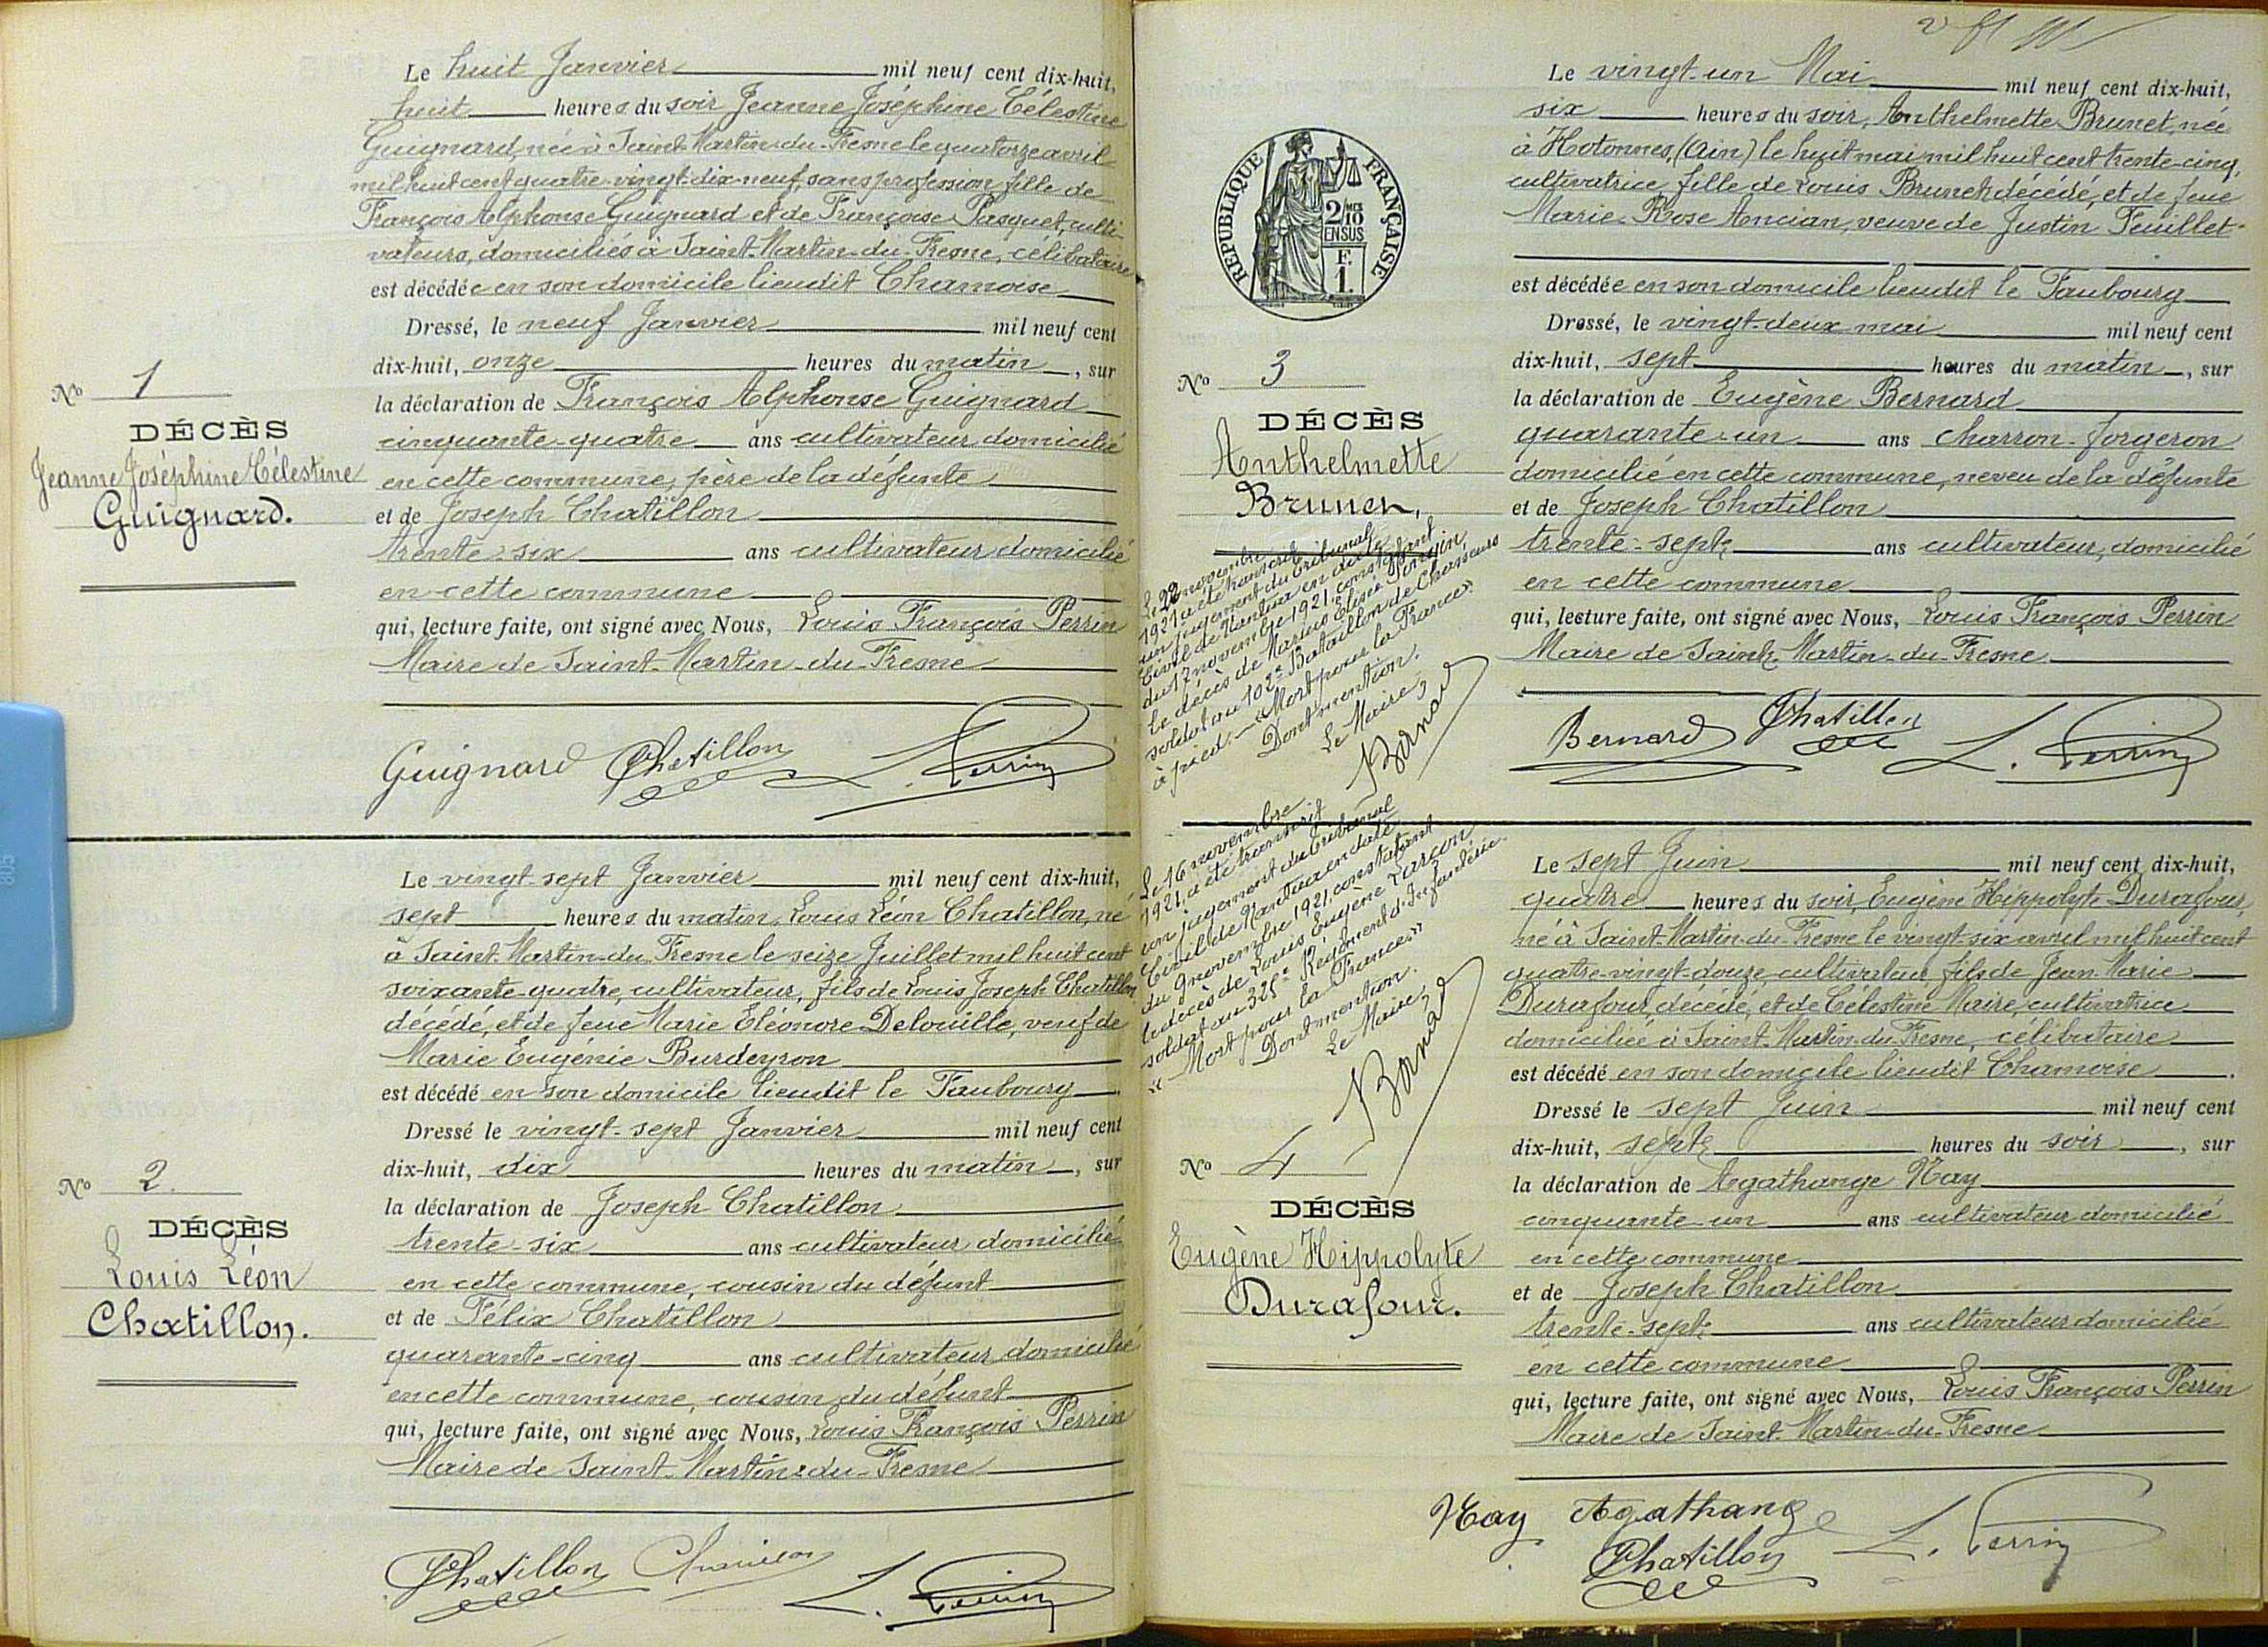 Le huit Janvier mil neuf cent dix-huit,
huit heures du soir Jeanne Joséphine Célestine
Guignard, née à Saint-Martin-du-Fresne le quatorze avril
mil huit cent quatre-vingt-dix-neuf, sans profession, fille de
François Alphonse Guignard et de Françoise Pasquet, culti-
vateurs, domiciliés à Saint-Martin-du-Fresne, célibataire
est décédée en son domicile lieudit Chamoise
Dressé, le neuf Janvier mil neuf cent
dix-huit, onze heures du matin, sur
la déclaration de François Alphonse Guignard
cinquante-quatre ans cultivateur domicilié
en cette commune, père de la défunte
et de Joseph Chatillon
trente-six ans cultivateur domicilié
en cette commune
qui, lecture faite, ont signé avec Nous, Louis François Perrin
Maire de Saint-Martin-du-Fresne
Guignard Chatillon L. Perrin
No 1
DÉCÈS
Jeanne Joséphine Célestine
Guignard.
Le vingt-sept Janvier mil neuf cent dix-huit,
sept heures du matin, Louis Léon Chatillon, né
à Saint-Martin-du-Fresne le seize Juillet mil huit cent
soixante-quatre, cultivateur, fils de Louis Joseph Chatillon
décédé, et de feue Marie Eléonore Delouille, veuf de
Marie Eugénie Burdeyron
est décédé en son domicile lieudit le Faubourg
Dressé le vingt-sept Janvier mil neuf cent
dix-huit, dix heures du matin, sur
la déclaration de Joseph Chatillon
trente-six ans cultivateur domicilié
en cette commune, cousin du défunt
et de Félix Chatillon
quarante-cinq ans cultivateur domicilié
en cette commune, cousin du défunt
qui, lecture faite, ont signé avec Nous, Louis François Perrin
Maire de Saint-Martin-du-Fresne
Chatillon Chatillon L. Perrin
No 2.
DÉCÈS
Louis Léon
Chatillon.
RÉPUBLIQUE FRANÇAISE
2/10
EN SUS
F.
1.
Le vingt-un Mai mil neuf cent dix-huit,
six heures du soir, Anthelmette Brunet, née
à Hotonnes, (Ain) le huit mai mil huit cent trente-cinq,
cultivatrice, fille de Louis Brunet décédé, et de feue
Marie-Rose Ancian, veuve de Justin Feuillet
est décédée en son domicile lieudit le Faubourg
Dressé, le vingt-deux mai mil neuf cent
dix-huit, sept heures du matin, sur
la déclaration de Eugène Bernard
quarante-un ans charron-forgeron
domicilié en cette commune, neveu de la défunte
et de Joseph Chatillon
trente-sept ans cultivateur, domicilié
en cette commune
qui, lecture faite, ont signé avec Nous, Louis François Perrin
Maire de Saint-Martin-du-Fresne
Bernard Chatillon L. Perrin
No 3
DÉCÈS
Anthelmette
Brunet,
Le 22 novembre
1921 a été transcrit
un jugement du Tribunal
Civil de Nantua en date
du 17 novembre 1921, constatant
le décès de Marius Elisée
soldat au 102e Bataillon de Chasseurs
à pied. — "Mort pour la France".
Dont mention.
Le Maire,
Le 16 novembre
1921, a été transcrit
un jugement du Tribunal
Civil de Nantua en date
du 9 novembre 1921, constatant
le décès de Louis Eugène Larçon
soldat au 325e Régiment d'Infanterie.
"Mort pour la France"
Dont mention.
Le Maire
Le sept Juin mil neuf cent dix-huit,
quatre heures du soir, Eugène Hippolyte Durafour,
né à Saint-Martin-du-Fresne le vingt-six avril mil huit cent
quatre-vingt-douze, cultivateur, fils de Jean-Marie
Durafour, décédé, et de Célestine Maire, cultivatrice
domiciliée à Saint-Martin-du-Fresne, célibataire
est décédé en son domicile lieudit Chamoise.
Dressé le sept Juin mil neuf cent
dix-huit, sept heures du soir, sur
la déclaration de Agathange Hay
cinquante-un ans cultivateur domicilié
en cette commune
et de Joseph Chatillon
trente-sept ans cultivateur domicilié
en cette commune
qui, lecture faite, ont signé avec Nous, Louis François Perrin
Maire de Saint-Martin-du-Fresne
Hay Agathange L. Perrin
Chatillon
No 4
DÉCÈS
Eugène Hippolyte
Durafour.